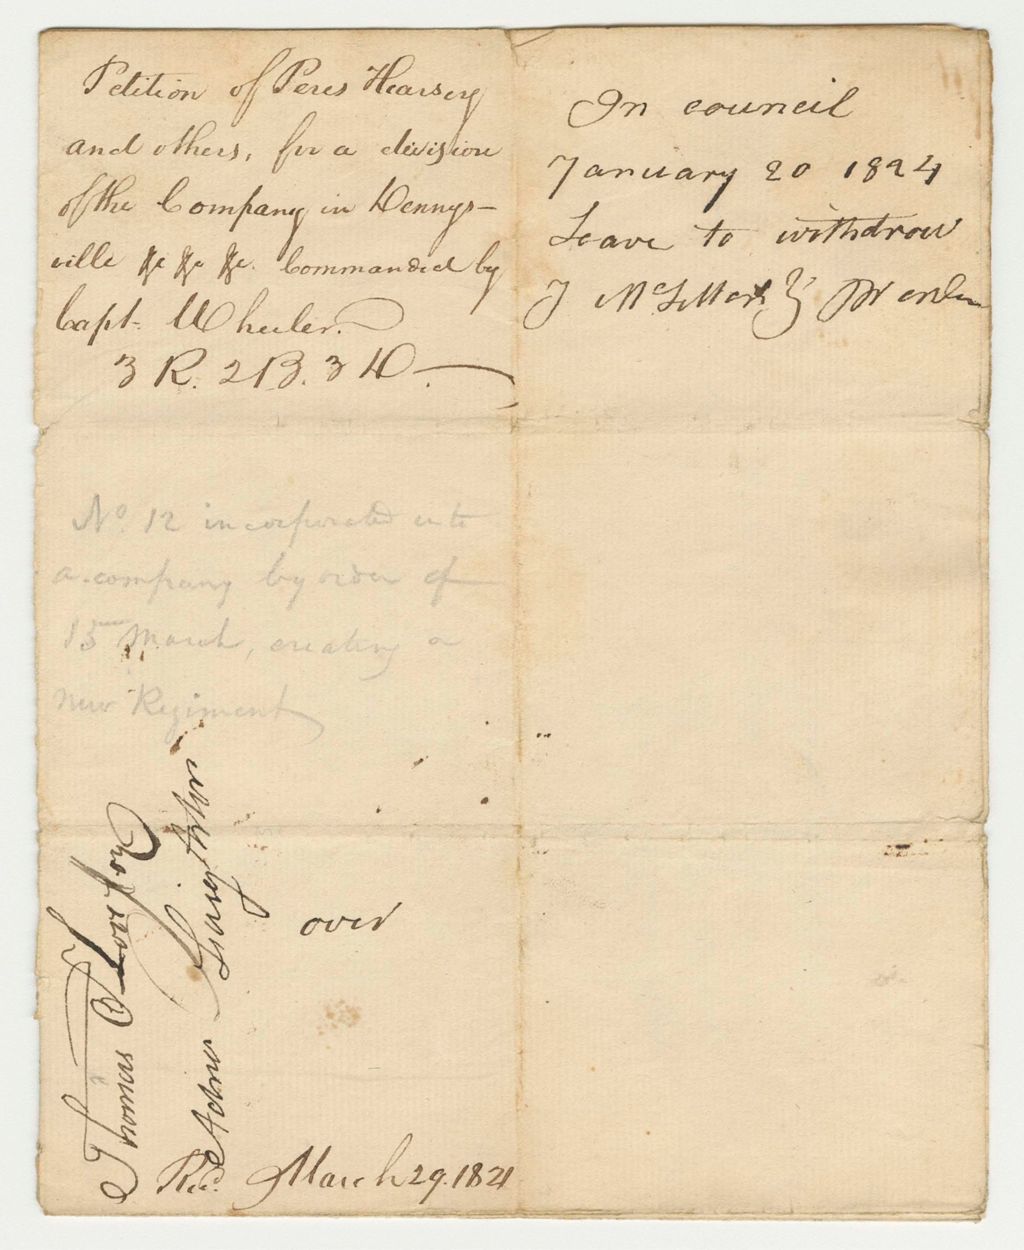 Petition of Peres Hearsey
and others, for a division
of the Company in Dennys-
ville &c &c &c. Commanded by
Capt. Wheeler.
3 R. 2 B. 3 D.
In council
January 20 1824
Leave to withdraw
J
No 12 incorporated into
a company by order of
15 March, creating a
new Regiment
Thomas
over
Recd. March 29. 1821